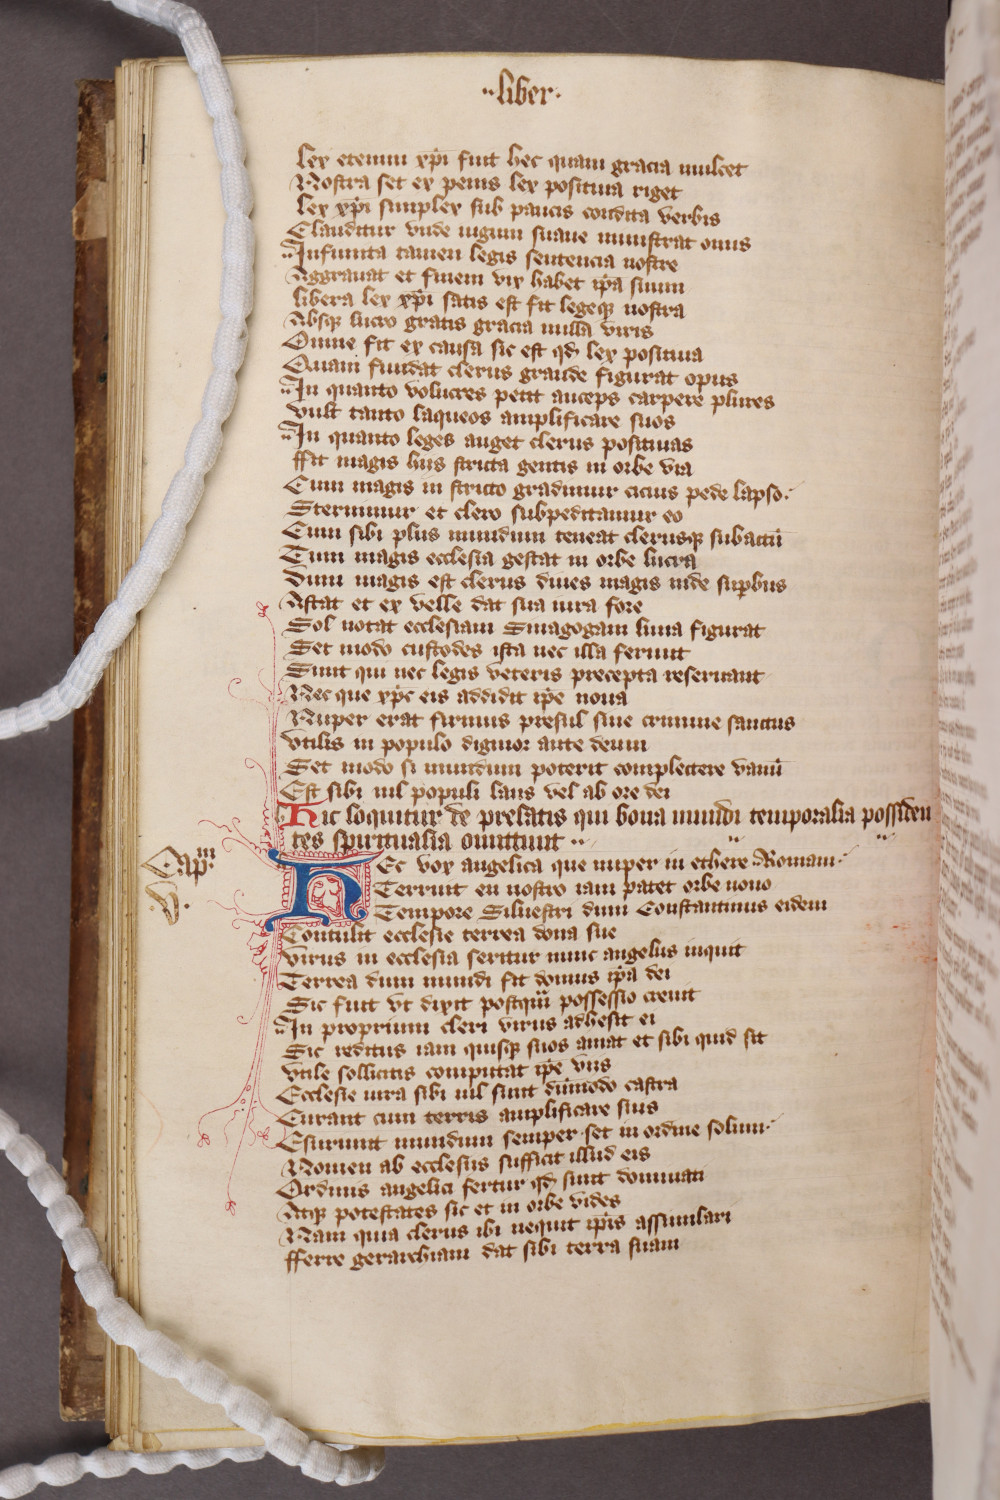 liber
lex etenim xpi fuit hec quam gracia mulcet
Nostra set ex penis lex positiua riget
lex xpi simplex sub paucis condita verbis
Clauditur vnde iugum suaue ministrat onus
Infinita tamen legis sentencia nostre
Aggrauat et finem vix habet ipa suum
libera lex xpi satis est fit legeqȝ nostra
Absqȝ lucro gratis gracia nulla viris
Omne fit ex causa sic est qd lex positiua
Quam fundat clerus grande figurat opus
In quanto volucres petit auceps carpere plures
vult tanto laqueos amplificare suos
In quanto leges auget clerus positiuas
ffit magis hiis stricta gentis in orbe via
Cum magis in stricto gradimur cicius pede lapso
Sternimur et clero subpeditamur eo
Cum sibi plus mundum teneat clerusqȝ subactū
Tum magis ecclesia gestat in orbe lucra
dum magis est clerus diues magis inde supbus
Astat et ex velle dat sua iura fore
Sol notat ecclesiam Sinagogam luna figurat
Set modo custodes ista nec illa ferunt
Sunt qui nec legis veteris precepta reseruant
Nec que xpc eis addidit ipe noua
Nuper erat firmus presul sine crimine sanctus
vtilis in populo dignior ante deum
Set modo si mundum poterit complectere vanū
Est sibi nil populi laus vel ab ore dei
Hic loquitur de prelatis qui bona mundi temporalia possiden
tes spiritualia omittunt
Capm
v
HEc vox angelica que nuper in ethere Romam
Terruit en nostro iam patet orbe nouo
Tempore Siluestri dum Constantinus eidem
Contulit ecclesie terrea dona sue
virus in ecclesia seritur nunc angelus inquit
Terrea dum mundi fit domus ipa dei
Sic fuit vt dixit postqm possessio creuit
In proprium cleri virus adhesit ei
Sic reditus iam quisqȝ suos amat et sibi quid sit
vtile sollicitis computat ipe viis
Ecclesie iura sibi nil sunt dūmodo castra
Curant cum terris amplificare suis
Esuriunt mundum semper set in ordine solum
Nomen ab ecclesiis sufficit illud eis
Ordinis angelici fertur qd sunt dominati
Atqȝ potestates sic et in orbe vides
Nam quia clerus ibi nequit ipis assimilari
fferre gerarchiam dat sibi terra suam